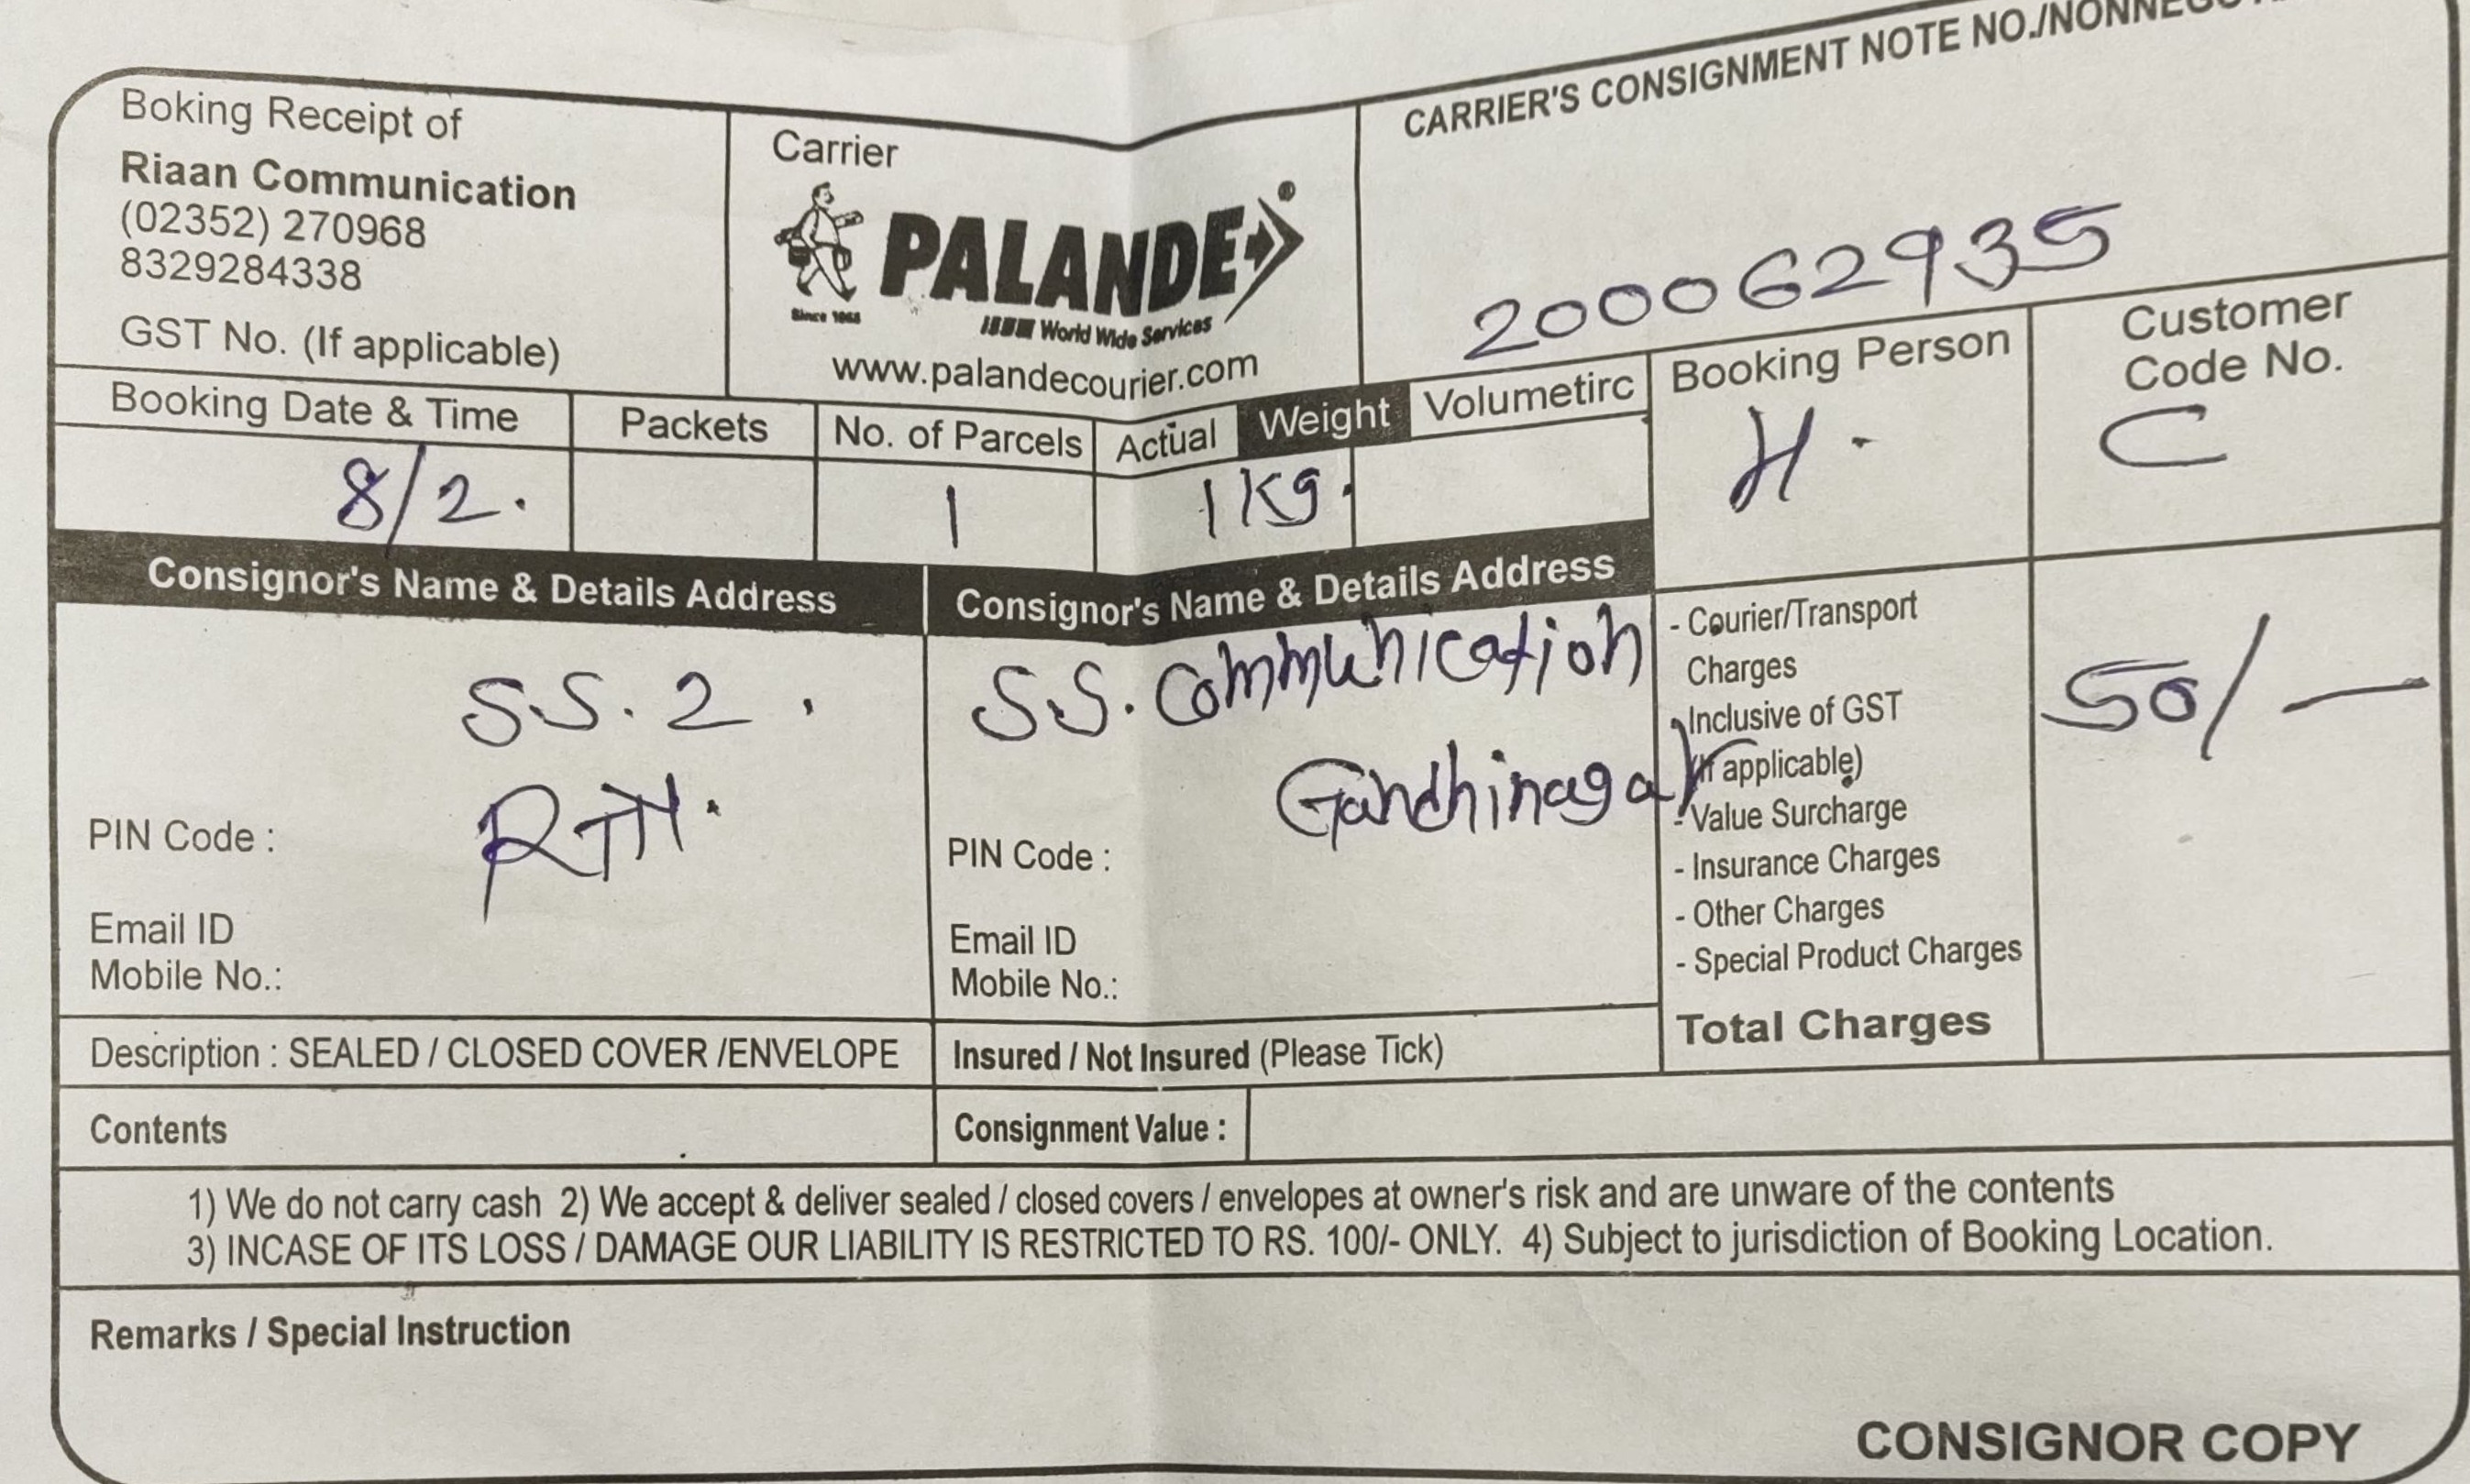 Boking Receipt of
Riaan Communication
(02352) 270968
8329284338
GST No. (If applicable)
Carrier
PALANDE
Since 1968
World Wide Services
www.palandecourier.com
CARRIER'S CONSIGNMENT NOTE NO./
200062935
Booking Date & Time
8/2.
Packets
No. of Parcels
1
Actual Weight Volumetirc
1 Kg.
Booking Person
H.
Customer
Code No.
C
Consignor's Name & Details Address
S.S. 2.
RTN.
PIN Code :
Email ID
Mobile No.:
Consignor's Name & Details Address
S.S. Communication
Gandhinagar
PIN Code :
Email ID
Mobile No.:
- Courier/Transport
Charges
Inclusive of GST
(If applicable)
- Value Surcharge
- Insurance Charges
- Other Charges
- Special Product Charges
Total Charges
50/-
Description : SEALED / CLOSED COVER /ENVELOPE
Insured / Not Insured (Please Tick)
Contents
Consignment Value :
1) We do not carry cash 2) We accept & deliver sealed / closed covers / envelopes at owner's risk and are unware of the contents
3) INCASE OF ITS LOSS / DAMAGE OUR LIABILITY IS RESTRICTED TO RS. 100/- ONLY. 4) Subject to jurisdiction of Booking Location.
Remarks / Special Instruction
CONSIGNOR COPY